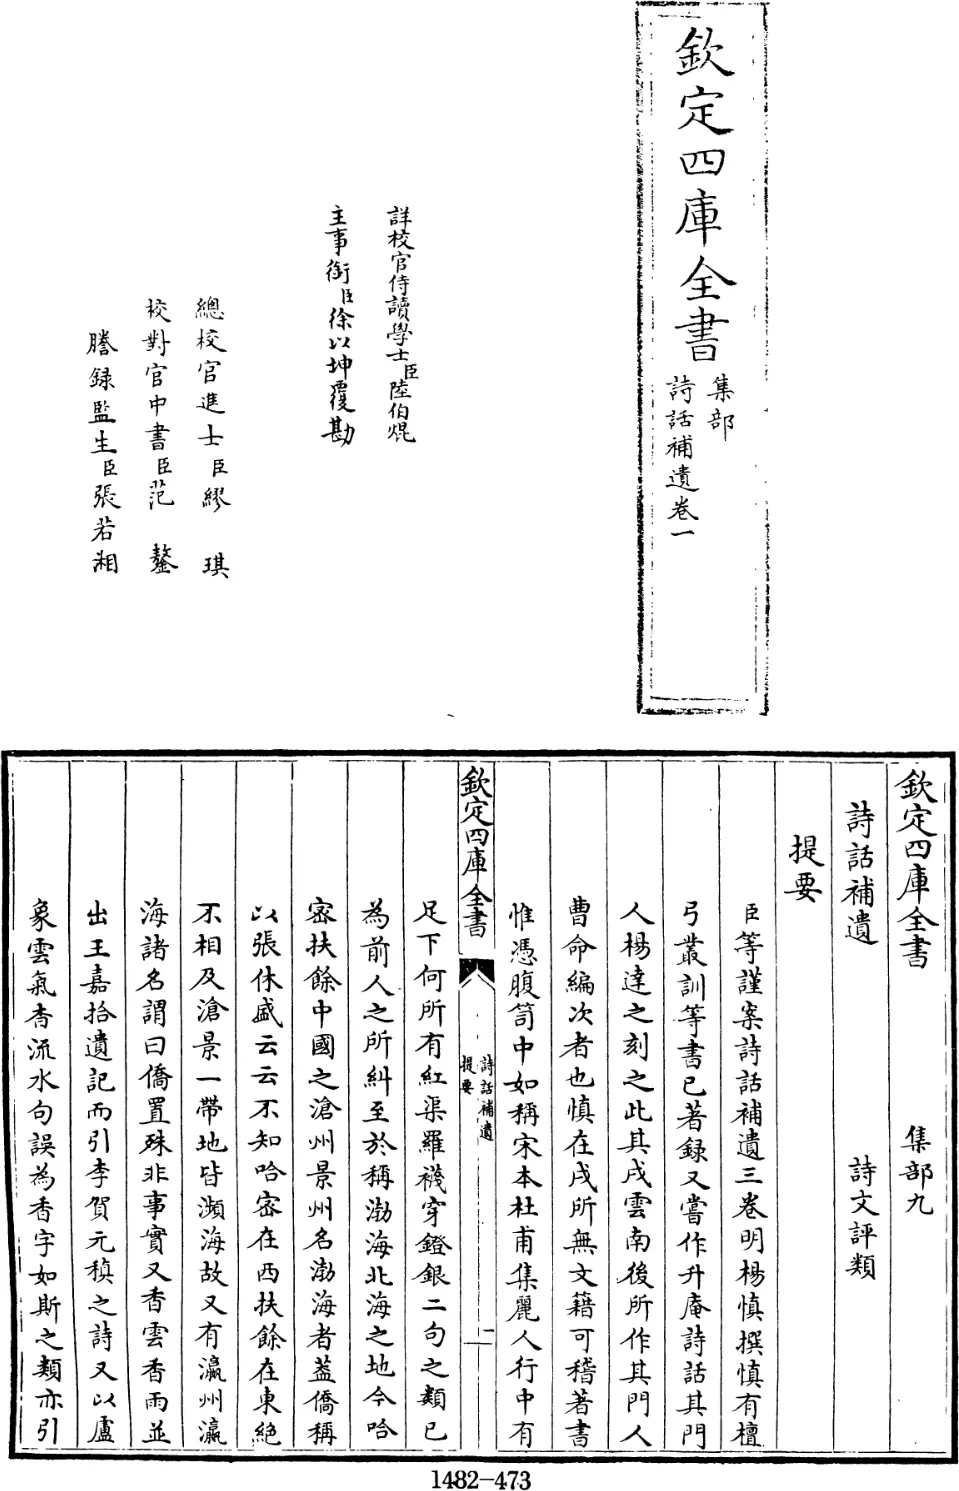 欽定四庫全書
集部
詩話補遺卷一
詳校官侍讀學士臣陸伯焜
主事銜臣徐以坤覆勘
總校官進士臣繆琪
校對官中書臣范鏊
謄録監生臣張若湘
欽定四庫全書 集部九
詩話補遺 詩文評類
提要
臣等謹案詩話補遺三卷明楊慎撰慎有檀
弓叢訓等書已著録又嘗作升庵詩話其門
人楊達之刻之此其戍雲南後所作其門人
曹命編次者也慎在戍所無文籍可稽著書
惟憑腹笥中如稱宋本杜甫集麗人行中有
欽定四庫全書
詩話補遺
提要
一
足下何所有紅渠羅襪穿鐙銀二句之類已
為前人之所糾至於稱渤海北海之地今哈
宻扶餘中國之滄州景州名渤海者葢僑稱
以張休盛云云不知哈宻在西扶餘在東絶
不相及滄景一帶地皆瀕海故又有瀛州瀛
海諸名謂曰僑置殊非事實又香雲香雨並
出王嘉拾遺記而引李賀元稹之詩又以盧
象雲氣杳流水句誤為香字如斯之類亦引
1482-473